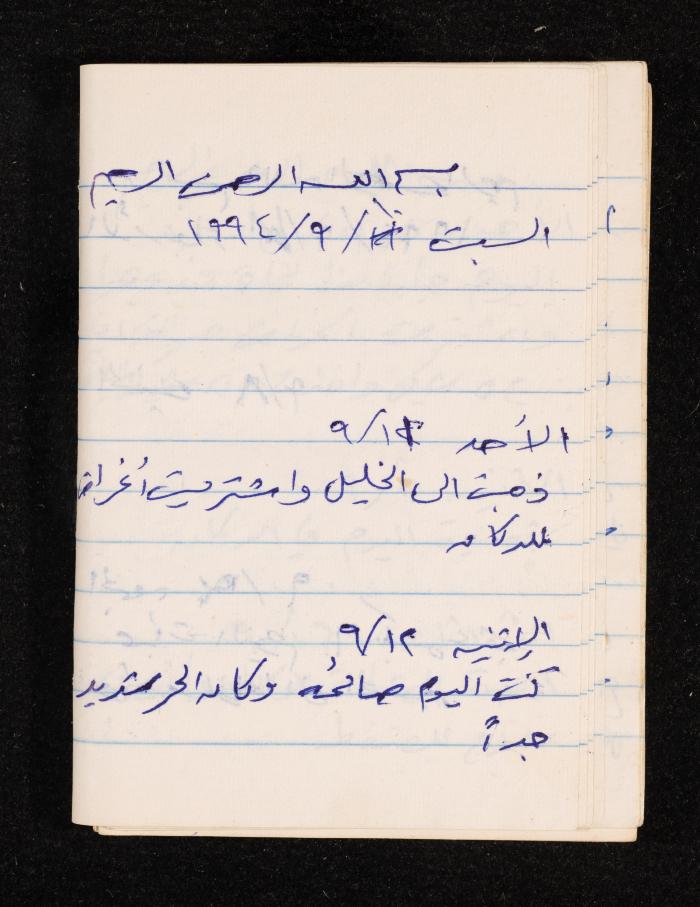 بسم الله الرحمن الرحيم
السبت ١٠/٩/١٩٩٤
الأحد ٩/١١
ذهبت الى الخليل واشتريت أغراض
للدكان
الإثنين ٩/١٢
كنت اليوم صائمه وكان الحر شديد
جداً